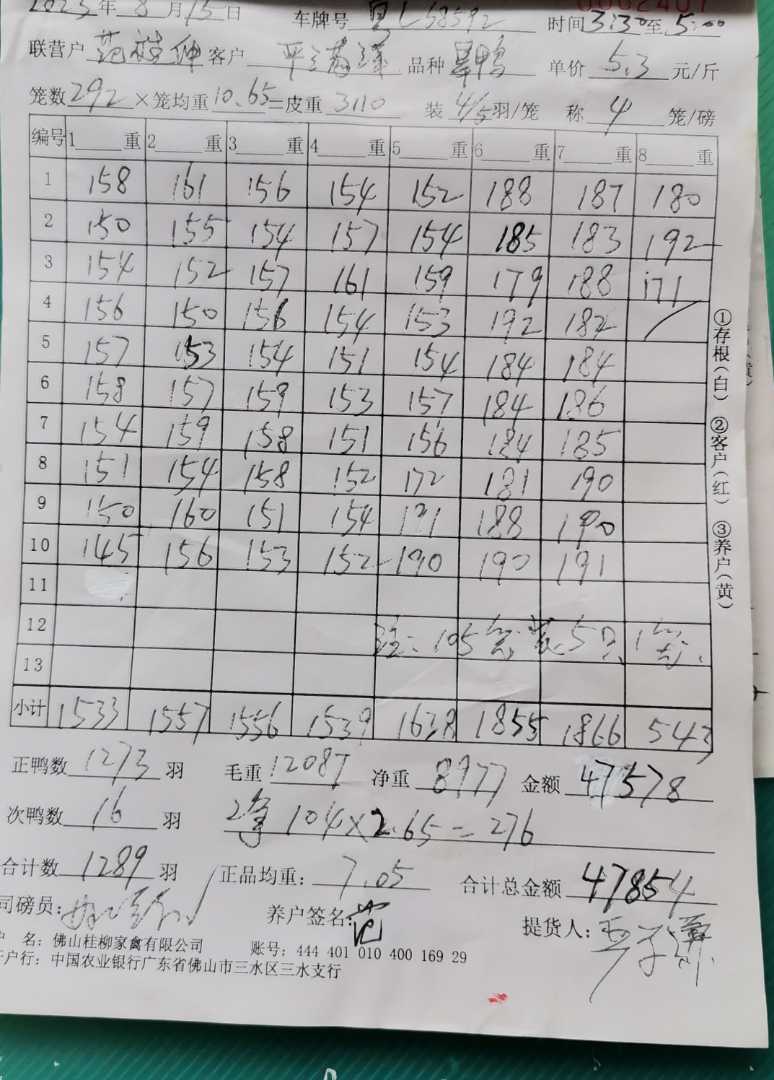 2023年 8 月 15 日 车牌号 粤L58592 时间 3:30 至 5:00
联营户 客户 平 品种 单价 5.3 元/斤
笼数 292 ×笼均重 10.65 =皮重 3110 装 4/5 羽/笼 称 4 笼/磅
编号 1 重 2 重 3 重 4 重 5 重 6 重 7 重 8 重
1 158 161 156 154 152 188 187 180
2 150 155 154 157 154 185 183 192
3 154 152 157 161 159 179 188 171
4 156 150 156 154 153 192 182 /
5 157 153 154 151 154 184 184
6 158 157 159 153 157 184 186
7 154 159 158 151 156 184 185
8 151 154 158 152 172 181 190
9 150 160 151 154 188 190
10 145 156 153 152 190 190 191
11
12 注：105笼装5只
13
小计 1533 1557 1556 1539 1638 1855 1866 543
正鸭数 1273 羽 毛重 12087 净重 8977 金额 47578
次鸭数 16 羽 104×2.65=276
合计数 1289 羽 正品均重： 7.05 合计总金额 47854
司磅员： 养户签名： 范 提货人：
户 名：佛山桂柳家禽有限公司 账号：444 401 010 400 169 29
户行：中国农业银行广东省佛山市三水区三水支行
①存根（白） ②客户（红） ③养户（黄）